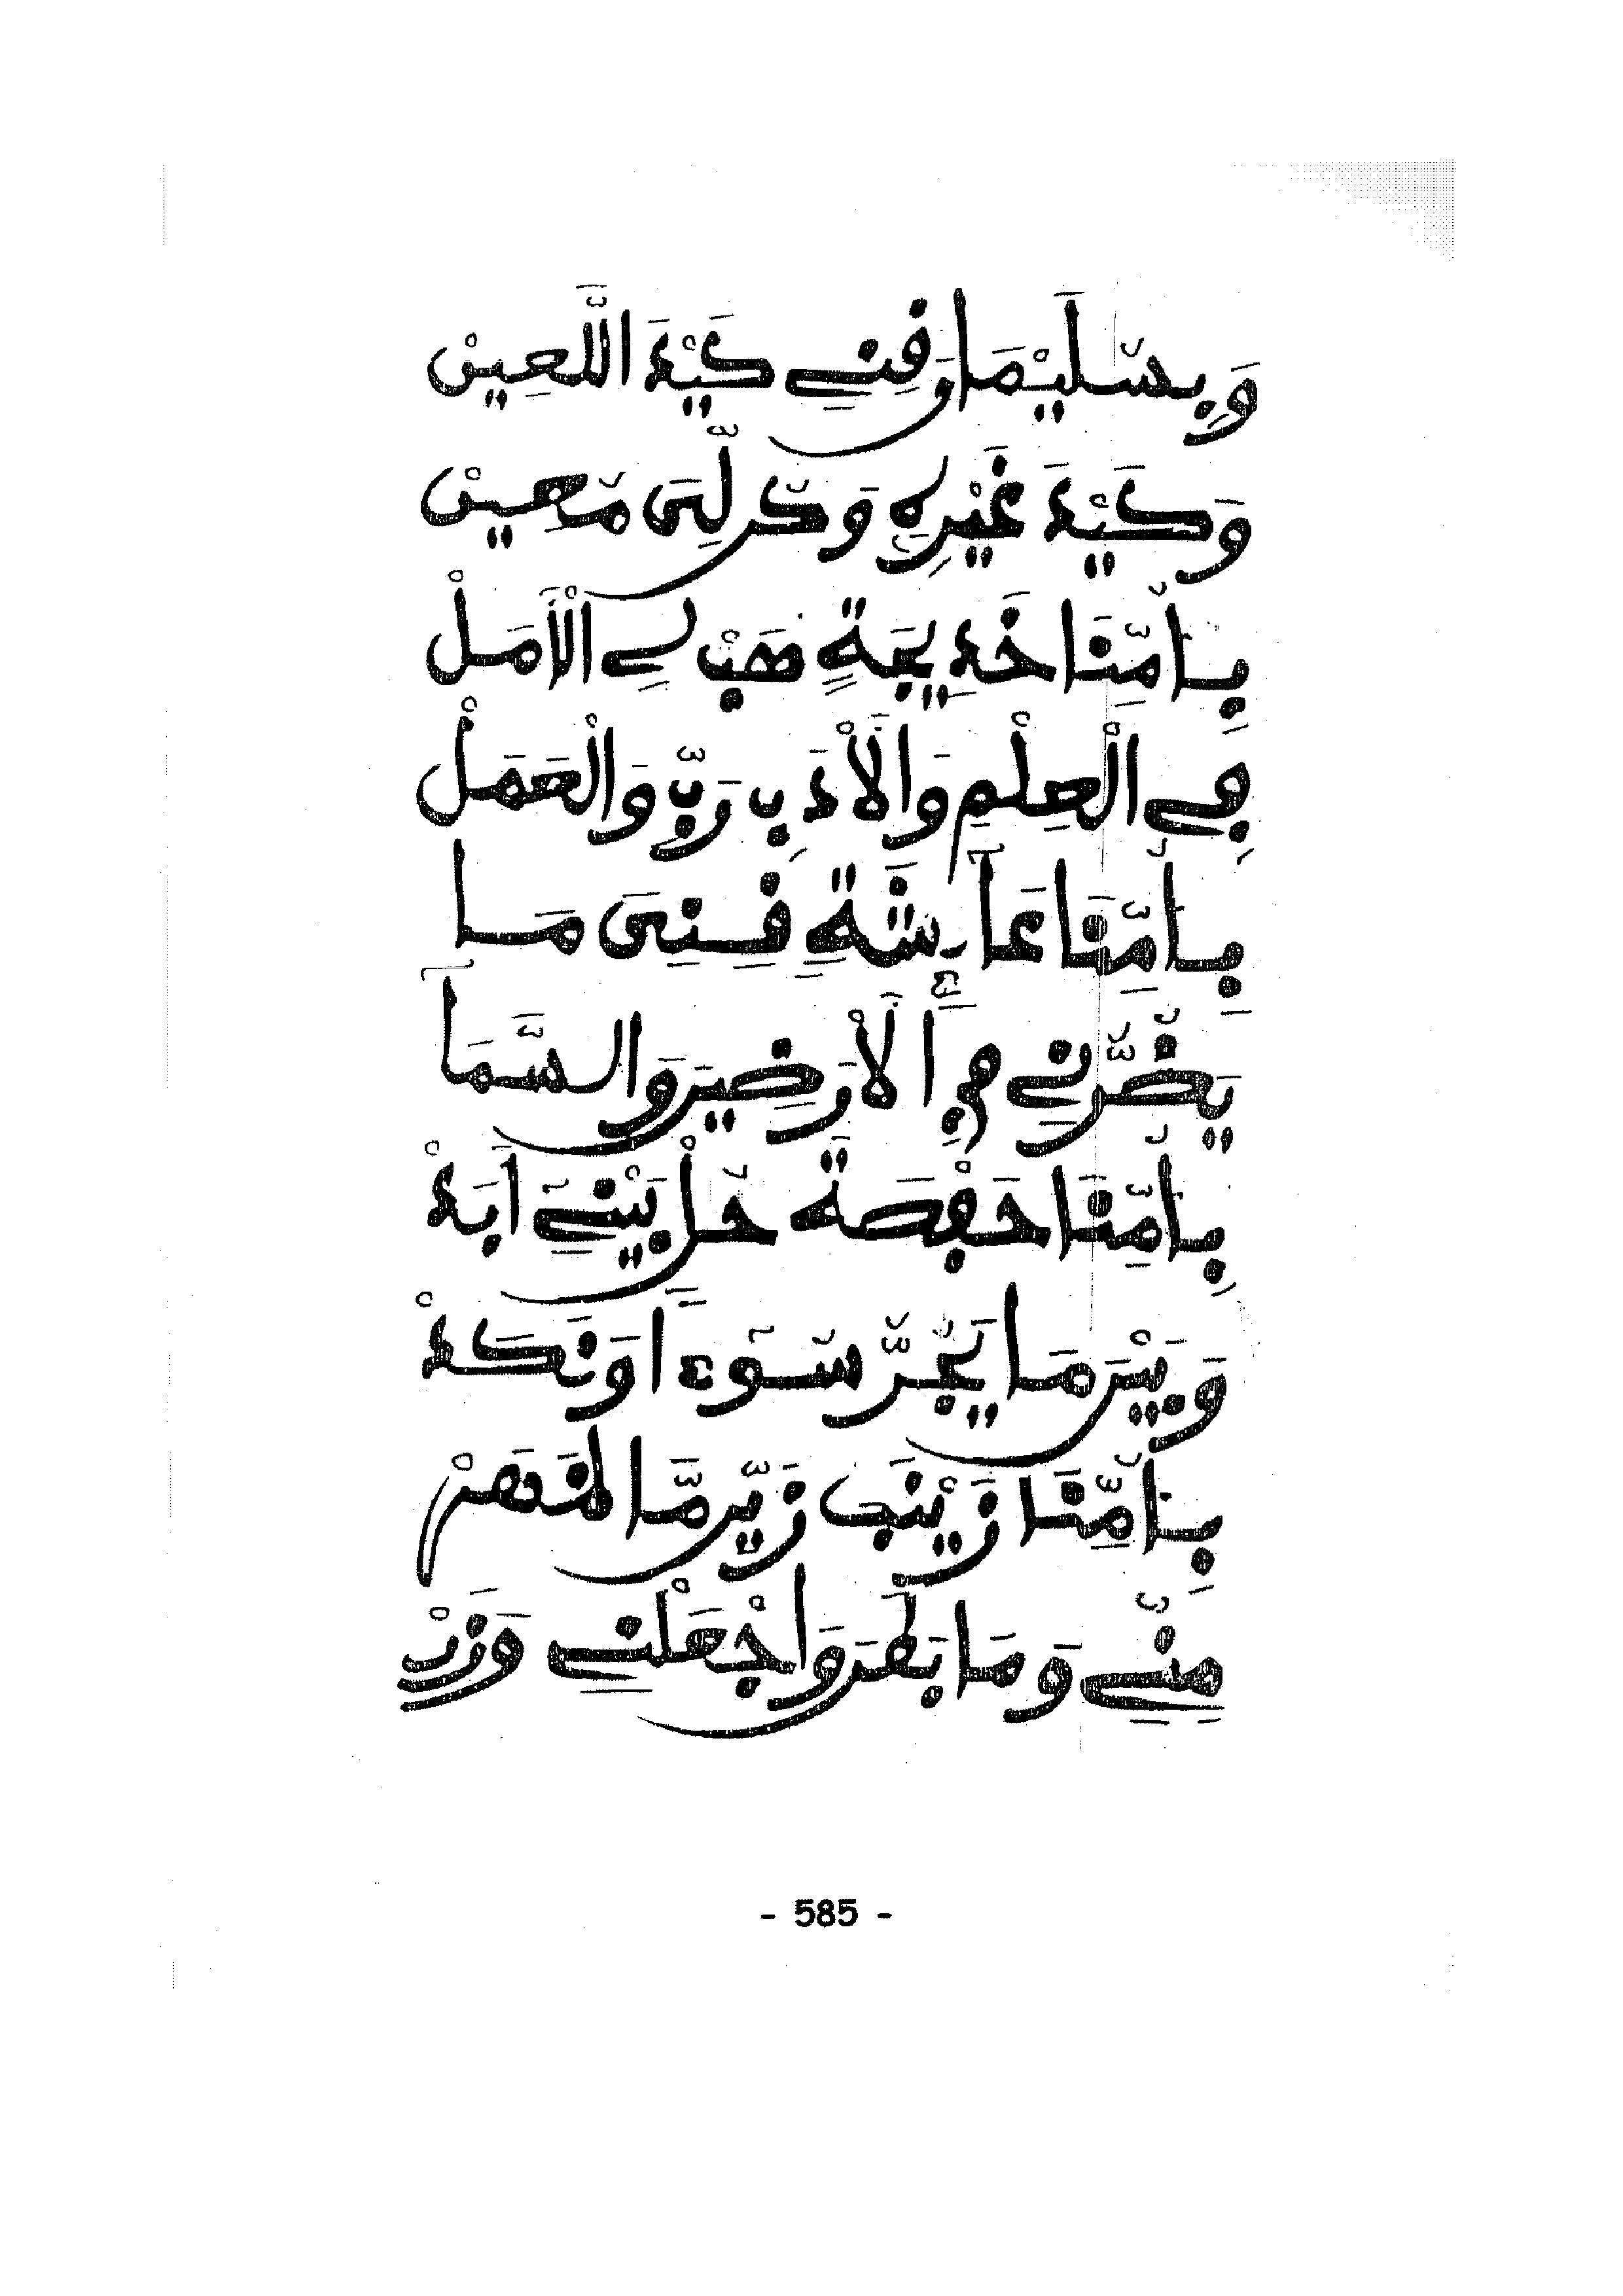 وَبِسُلَيْمَا وَفِنِي كَيْدَ اللَّعِينْ
وَكَيْدَ غَيْرِهِ وَكُن لِّي مُعِينْ
بِأُمِّنَا خَدِيجَةٍ هَبْ لِي الْأَمَلْ
فِي الْعِلْمِ وَالْأَدَبِ رَبُّ وَالْعَمَلْ
بِأُمِّنَا عَآئِشَةٍ فِنِي مَا
يَضُرُّنِي فِي أَلْأَرْضِ وَالسَّمَآ
بِأُمِّنَا حَفْصَةَ حُلْ بَيْنِي أَبَدْ
وَبَيْنَ مَا يَجُرُّ سُوٓءًا وَنَكَدْ
بِأُمِّنَا زَيْنَبَ زَيِّن مَّا ظَهَرْ
مِنِّي وَمَا بَطَنَ وَاجْعَلْنِي وَزَرْ
- 585 -